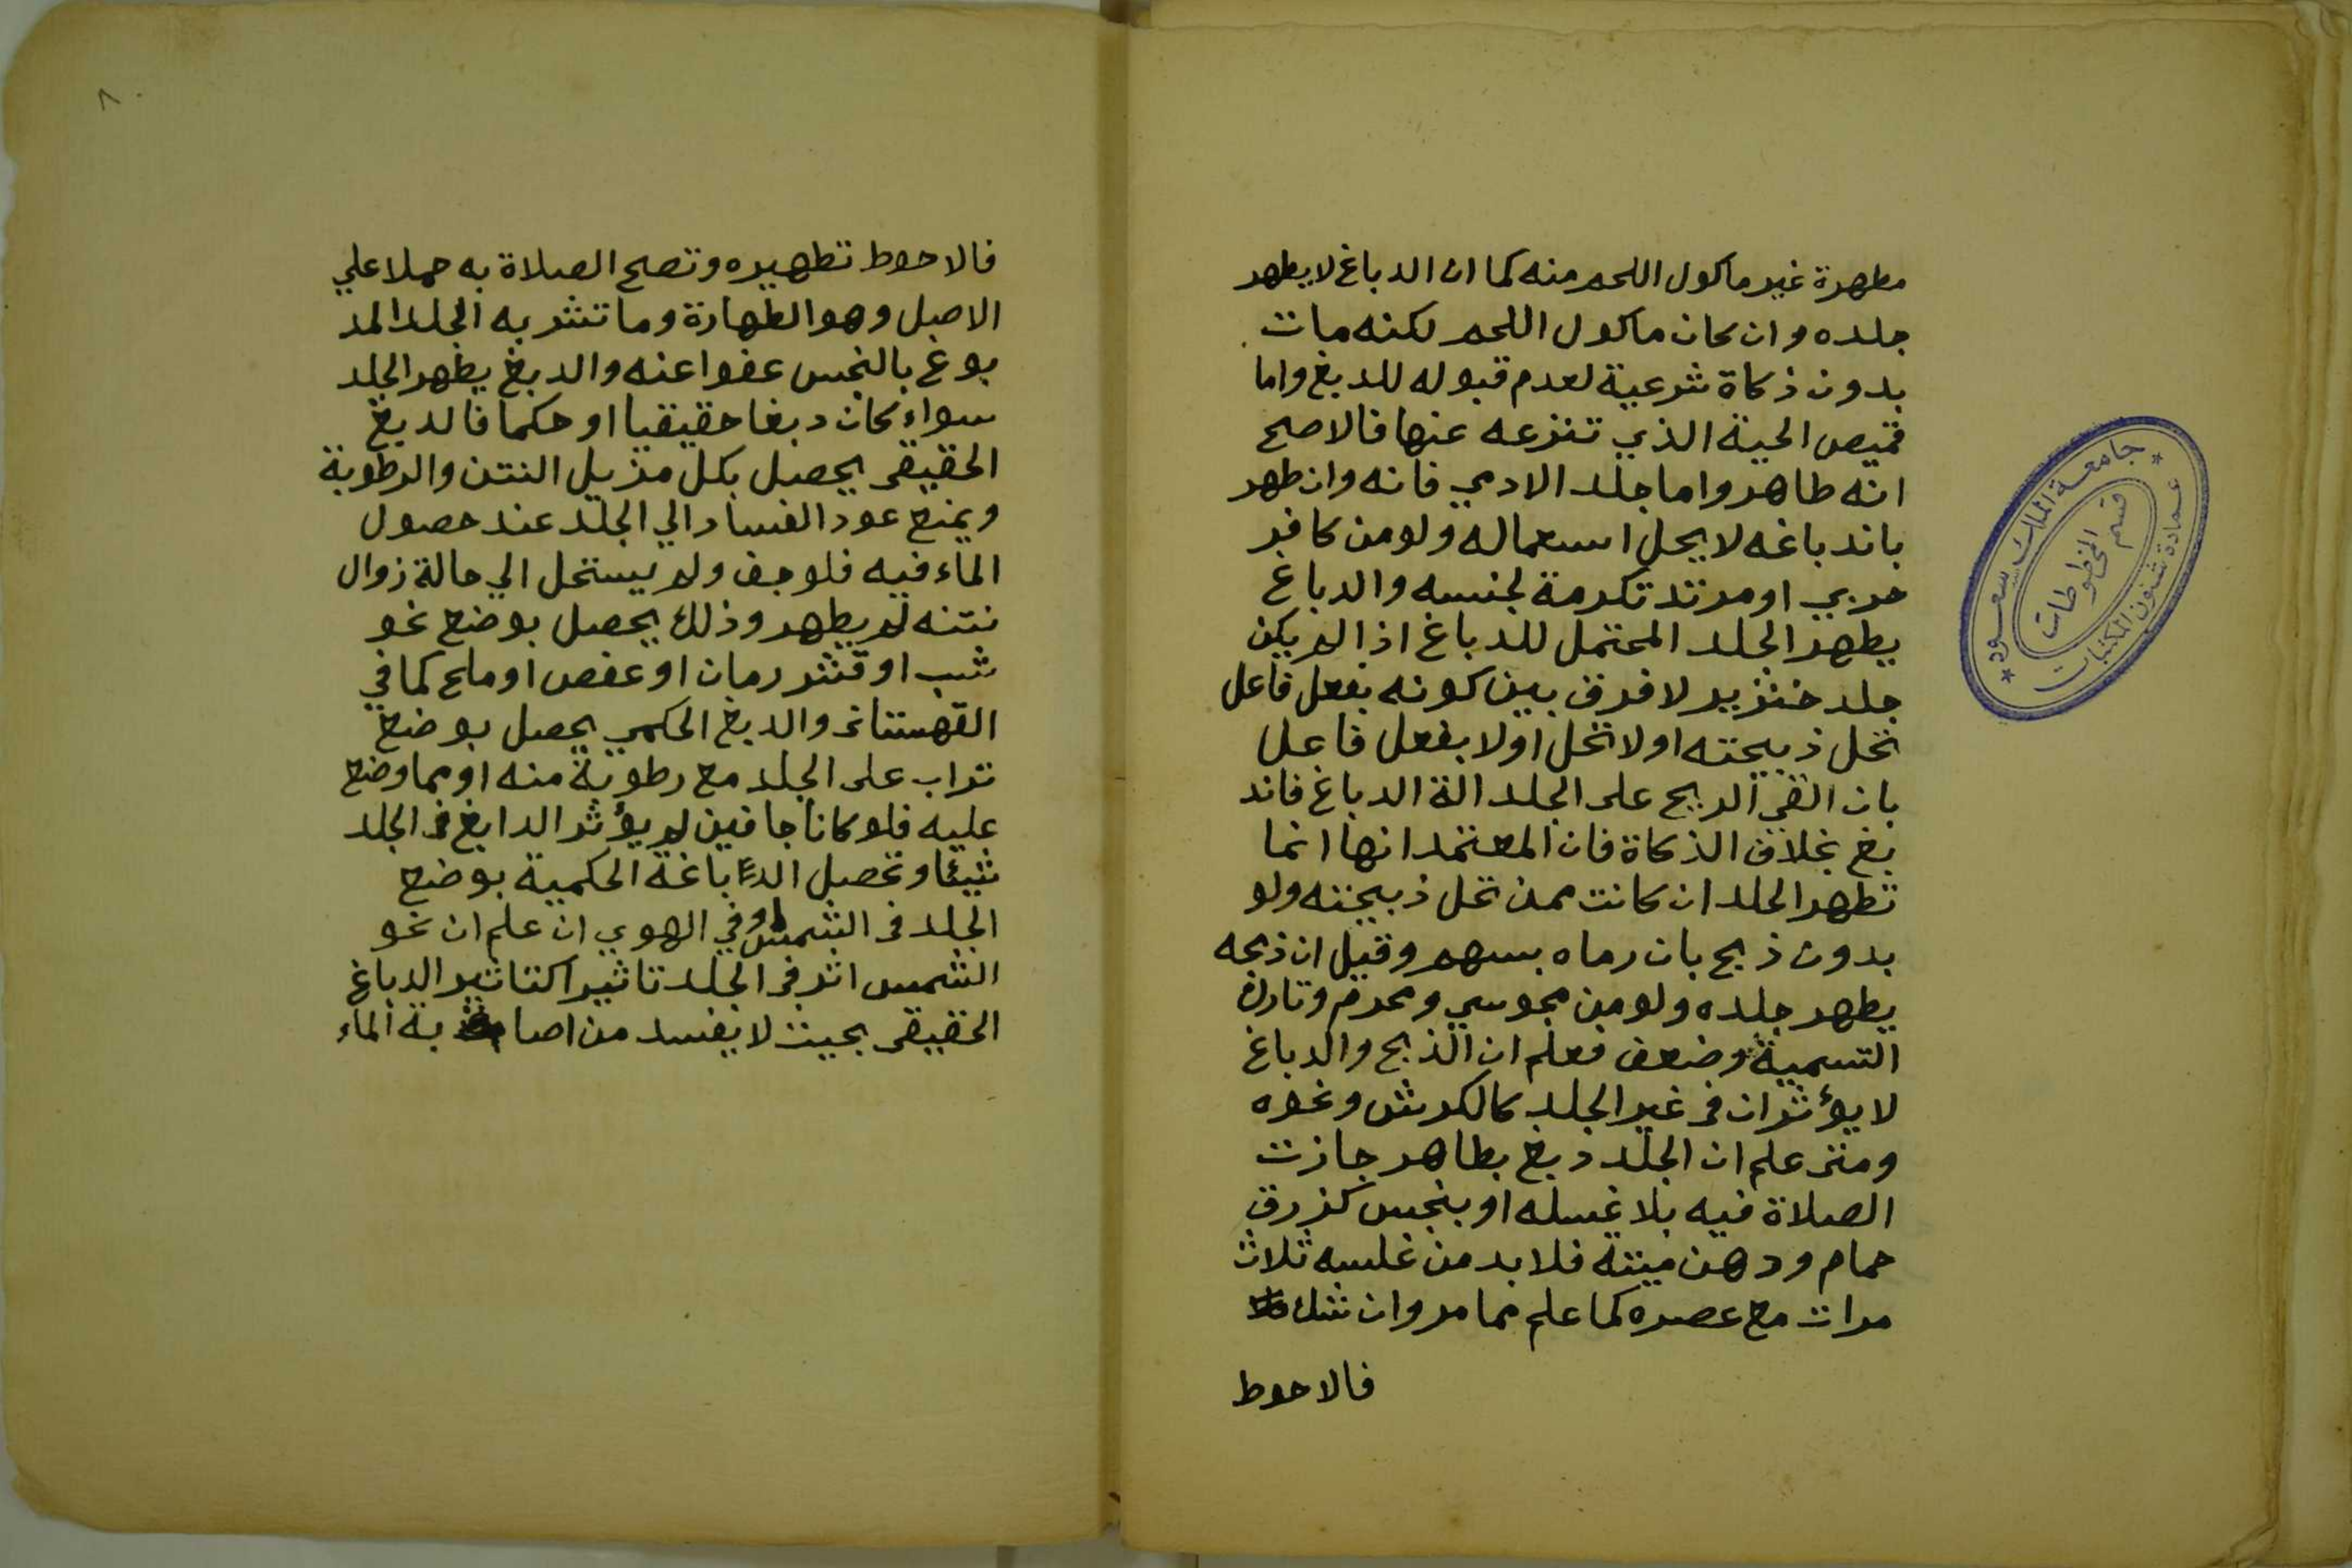 مطهرة غير ماكول اللحم منه كما ان الدباغ لا يطهر
جلده وان كان ماكول اللحم لكنه مات
بدون ذكاة شرعية لعدم قبوله للدبغ واما
قميص الحية الذي تنزعه عنها فالاصح
انه طاهر واما جلد الادمي فانه وان طهر
باندباغه لا يحل استعماله ولو من كافر
حربي او مرتد تكرمة لجنسه والدباغ
يطهر الجلد المحتمل للدباغ اذا لم يكن
جلد خنزير لا فرق بين كونه بفعل فاعل
تحل ذبيحته اولا تحل اولا بفعل فاعل
بان القى الريح على الجلد الة الدباغ فاند
بغ بخلاف الذكاة فان المعتمد انها انما
تطهر الجلد ان كانت ممن تحل ذبيحته ولو
بدون ذبح بان رماه بسهم وقيل ان ذبحه
يطهر جلده ولو من مجوسي ومحرم وتارك
التسمية وضعف فعلم ان الذبح والدباغ
لا يؤثران فى غير الجلد كالكرش ونحوه
ومتى علم ان الجلد دبغ بطاهر جازت
الصلاة فيه بلا غسله او بنجس كزرق
حمام ودهن ميتة فلا بد من غلسه ثلاث
مرات مع عصره كما علم مما مر وان شك
فالاحوط
٨٠
فالاحوط تطهيره وتصح الصلاة به حملا علي
الاصل وهو الطهارة وما تشربه الجلد المد
بوغ بالنجس عفوا عنه والدبغ يطهر الجلد
سواء كان دبغا حقيقيا او حكما فالدبغ
الحقيقى يحصل بكل مزيل النتن والرطوبة
ويمنع عود الفساد الي الجلد عند حصول
الماء فيه فلو جف ولم يستحل الي حالة زوال
نتنه لم يطهر وذلك يحصل بوضع نحو
شب او قشر رمان او عفص او ملح كما في
القهستانى والدبغ الحكمي يحصل بوضع
تراب على الجلد مع رطوبة منه او مما وضع
عليه فلو كانا جافين لم يؤثر الدابغ فى الجلد
شيئا وتحصل الدباغة الحكمية بوضع
الجلد فى الشمس او في الهوي ان علم ان نحو
الشمس اثر فى الجلد تاثيرا كتاثير الدباغ
الحقيقى بحيث لا يفسد من اصا بة الماء
جامعة الملك سعود
عمادة شئون المكتبات
قسم المخطوطات